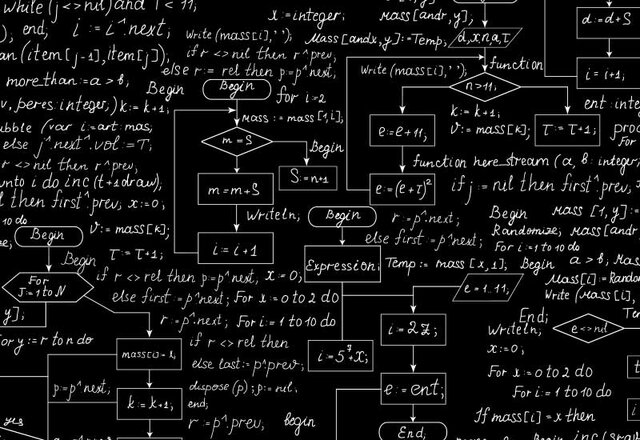 while (j<>nil) and T < 11,
x:=integer;
mass[andr, y];
d:=d+S
end;
i:=i^.next;
Write(mass[i],' ');
Mass[andx, y]:=Temp;
d, x, n, a, τ
(item[j-1], item[j];
if r <> nel then r^prev,
else r:= rel then p:=p^next,
Write(mass[i],' ');
function
i:=i+1;
more_than:=a > b,
Begin
Begin
for i:=2
n>11,
v, peres:integer,)
k:=k+1,
mass := mass[1,i];
k:=k+1;
(var i:=art:mas,
m=S
Begin
e:=e+11,
v:=mass[k];
T:=T+1;
For
else j^.next^.vol:=T;
r <> nel then r^prev;
m:=m+S
S:=n+1
function here_stream (a, b:integer;
i do inc(t+1draw);
e:=(e+τ)²
if j:= nil then first^.prev,
then first^.prev; x:=0;
Writeln;
Begin
r:=p^.next;
Begin
mass [1, y]:=
10 do
Begin
v:=mass[k];
i:=i+1
else first:=p^.next;
Randomize; Mass[andr
T:=T+1;
For i:=1 to 10 do
Begin
Expression;
Temp:= mass [x,1];
Begin
a > b;
For
J:=1 to N
if r <> rel then p:=p^next,
x:=0;
e=1..11;
Mass[i]:=Random(
else first:=p^next;
For x:=0 to 2 do
Write (Mass[i],
y];
r:=p^.next;
For i:=1 to 10 do
i:=2Z;
End;
Writeln;
e<>nd
y:=r to n do
if r <> rel then
x:=0;
else last:=p^prev;
i:=5⁷+x;
For x:=0 to 2 do
p:=p^next;
dispose (p);p:=nil,
e:=ent;
For i:=1 to 10 do
k:=k+1;
end;
If mass[i]=x then
yes
r:=p^.prev,
begin
End,
Begin